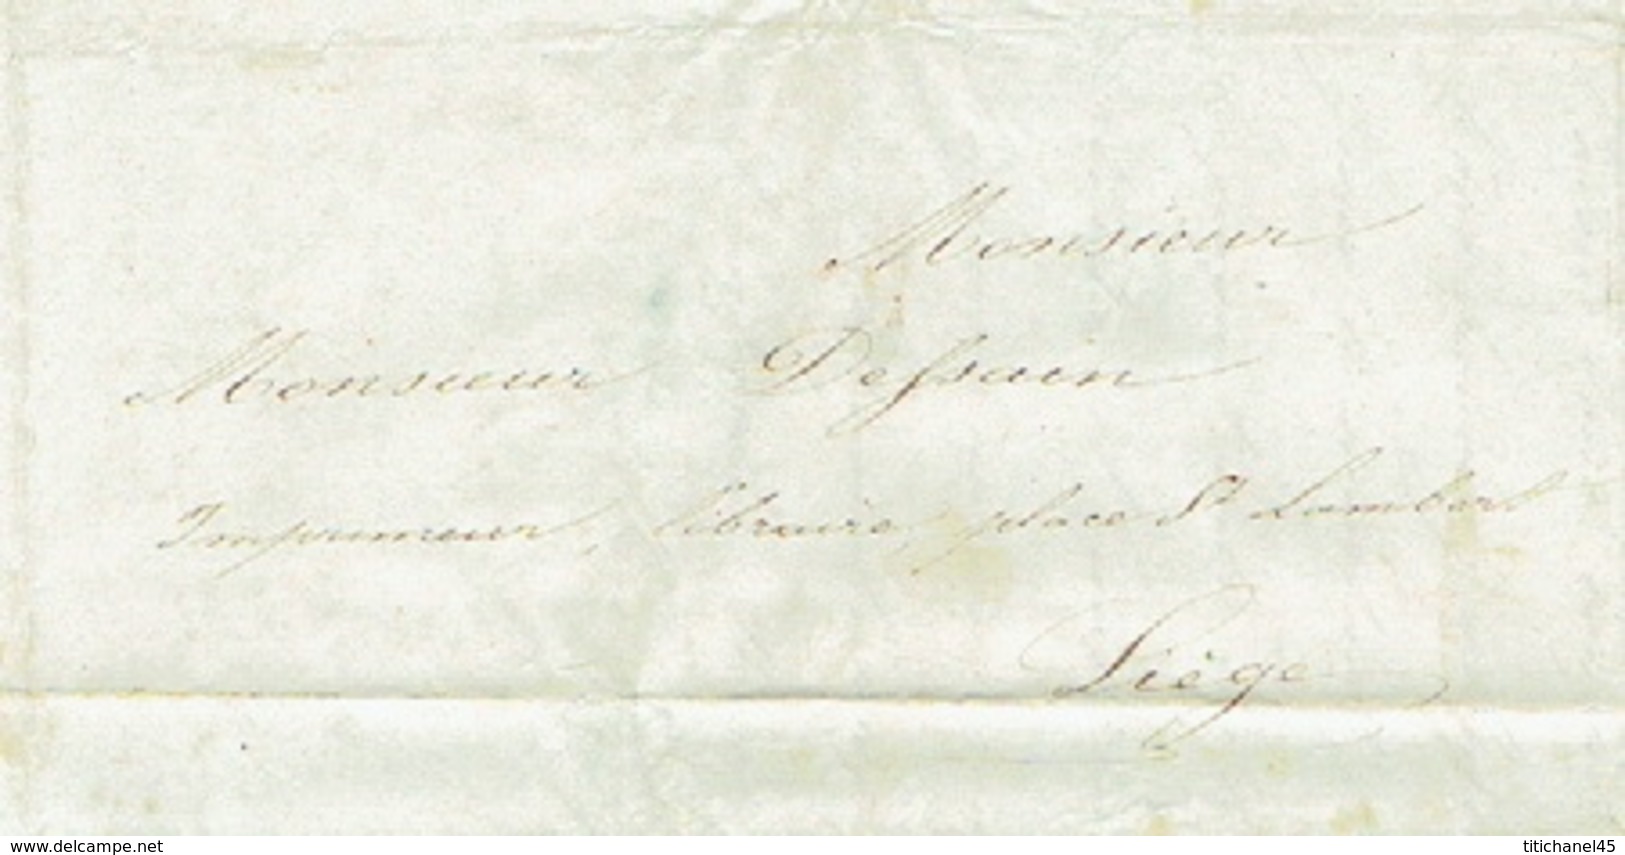 Monsieur
Monsieur Dessain
Imprimeur, libraire, place St Lambert
Liège
www.delcampe.net
titichanel45